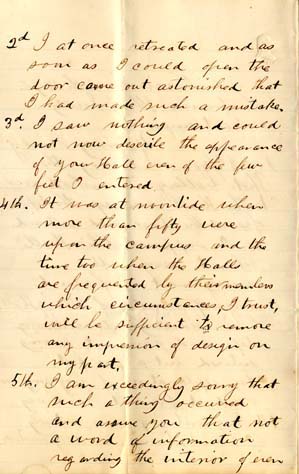 2d I at once retreated and as
soon as I could open the
door came out astonished that
I had made such a mistake.
3d. I saw nothing and could
not now describe the appearance
of your Hall even of the few
feet I entered
4th. It was at noontide when
more than fifty were
upon the campus and the
time too when the Halls
are frequented by their members
which circumstances, I trust,
will be sufficient to remove
any impression of design on
my part.
5th. I am exceedingly sorry that
such a thing occurred
and assure you that not
a word of information
regarding the interior of even